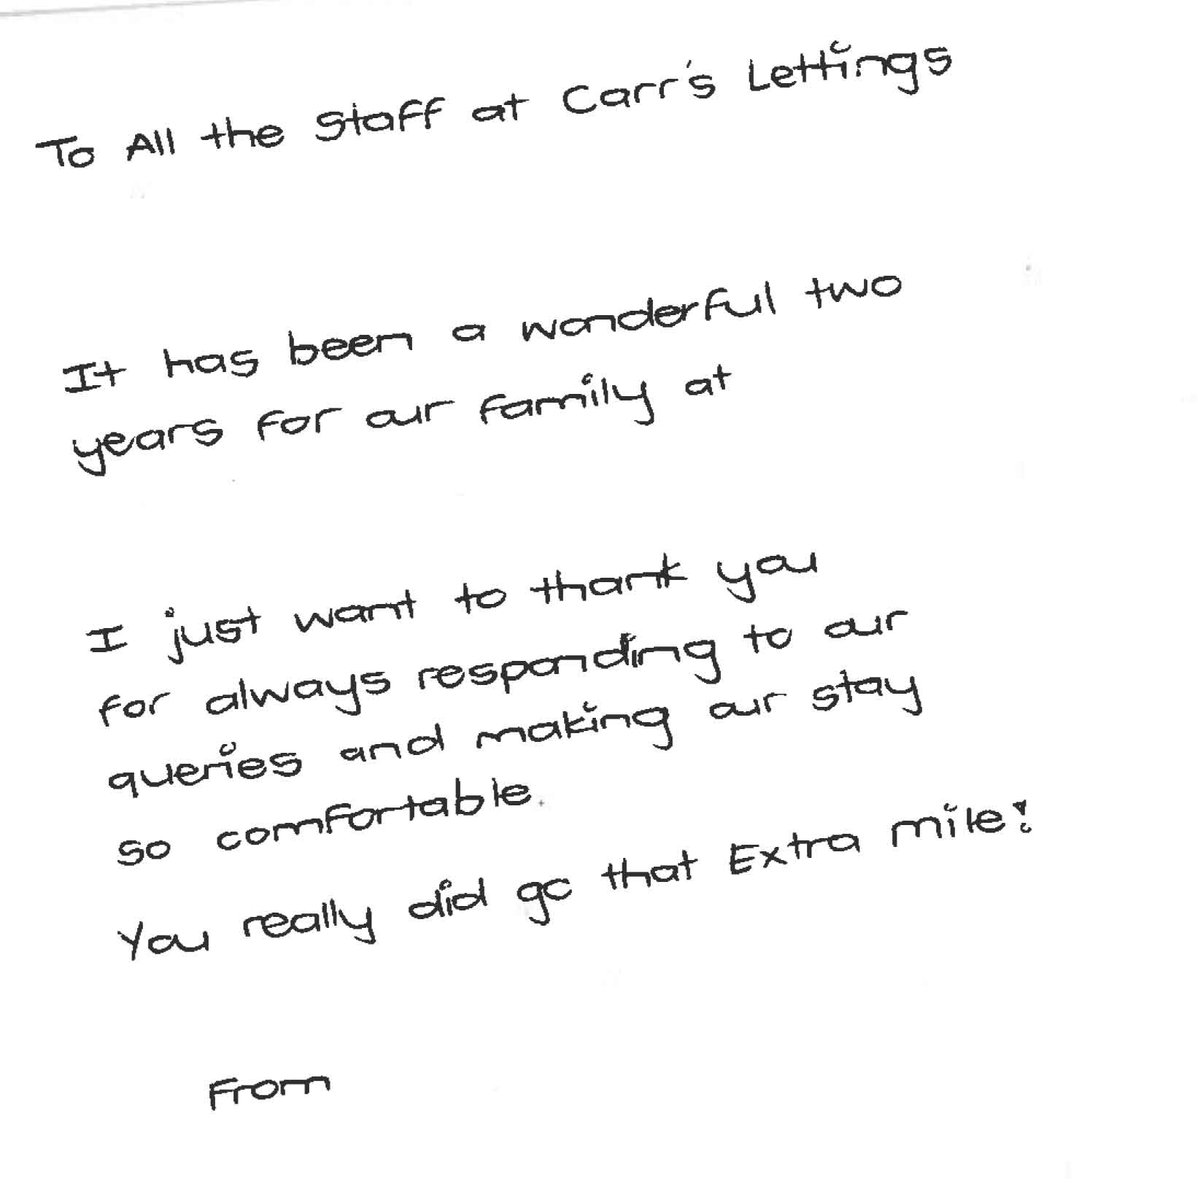 To All the Staff at Carr's Lettings
It has been a wonderful two
years for our family at
I just want to thank you
for always responding to our
queries and making our stay
so comfortable.
You really did go that Extra mile!
From